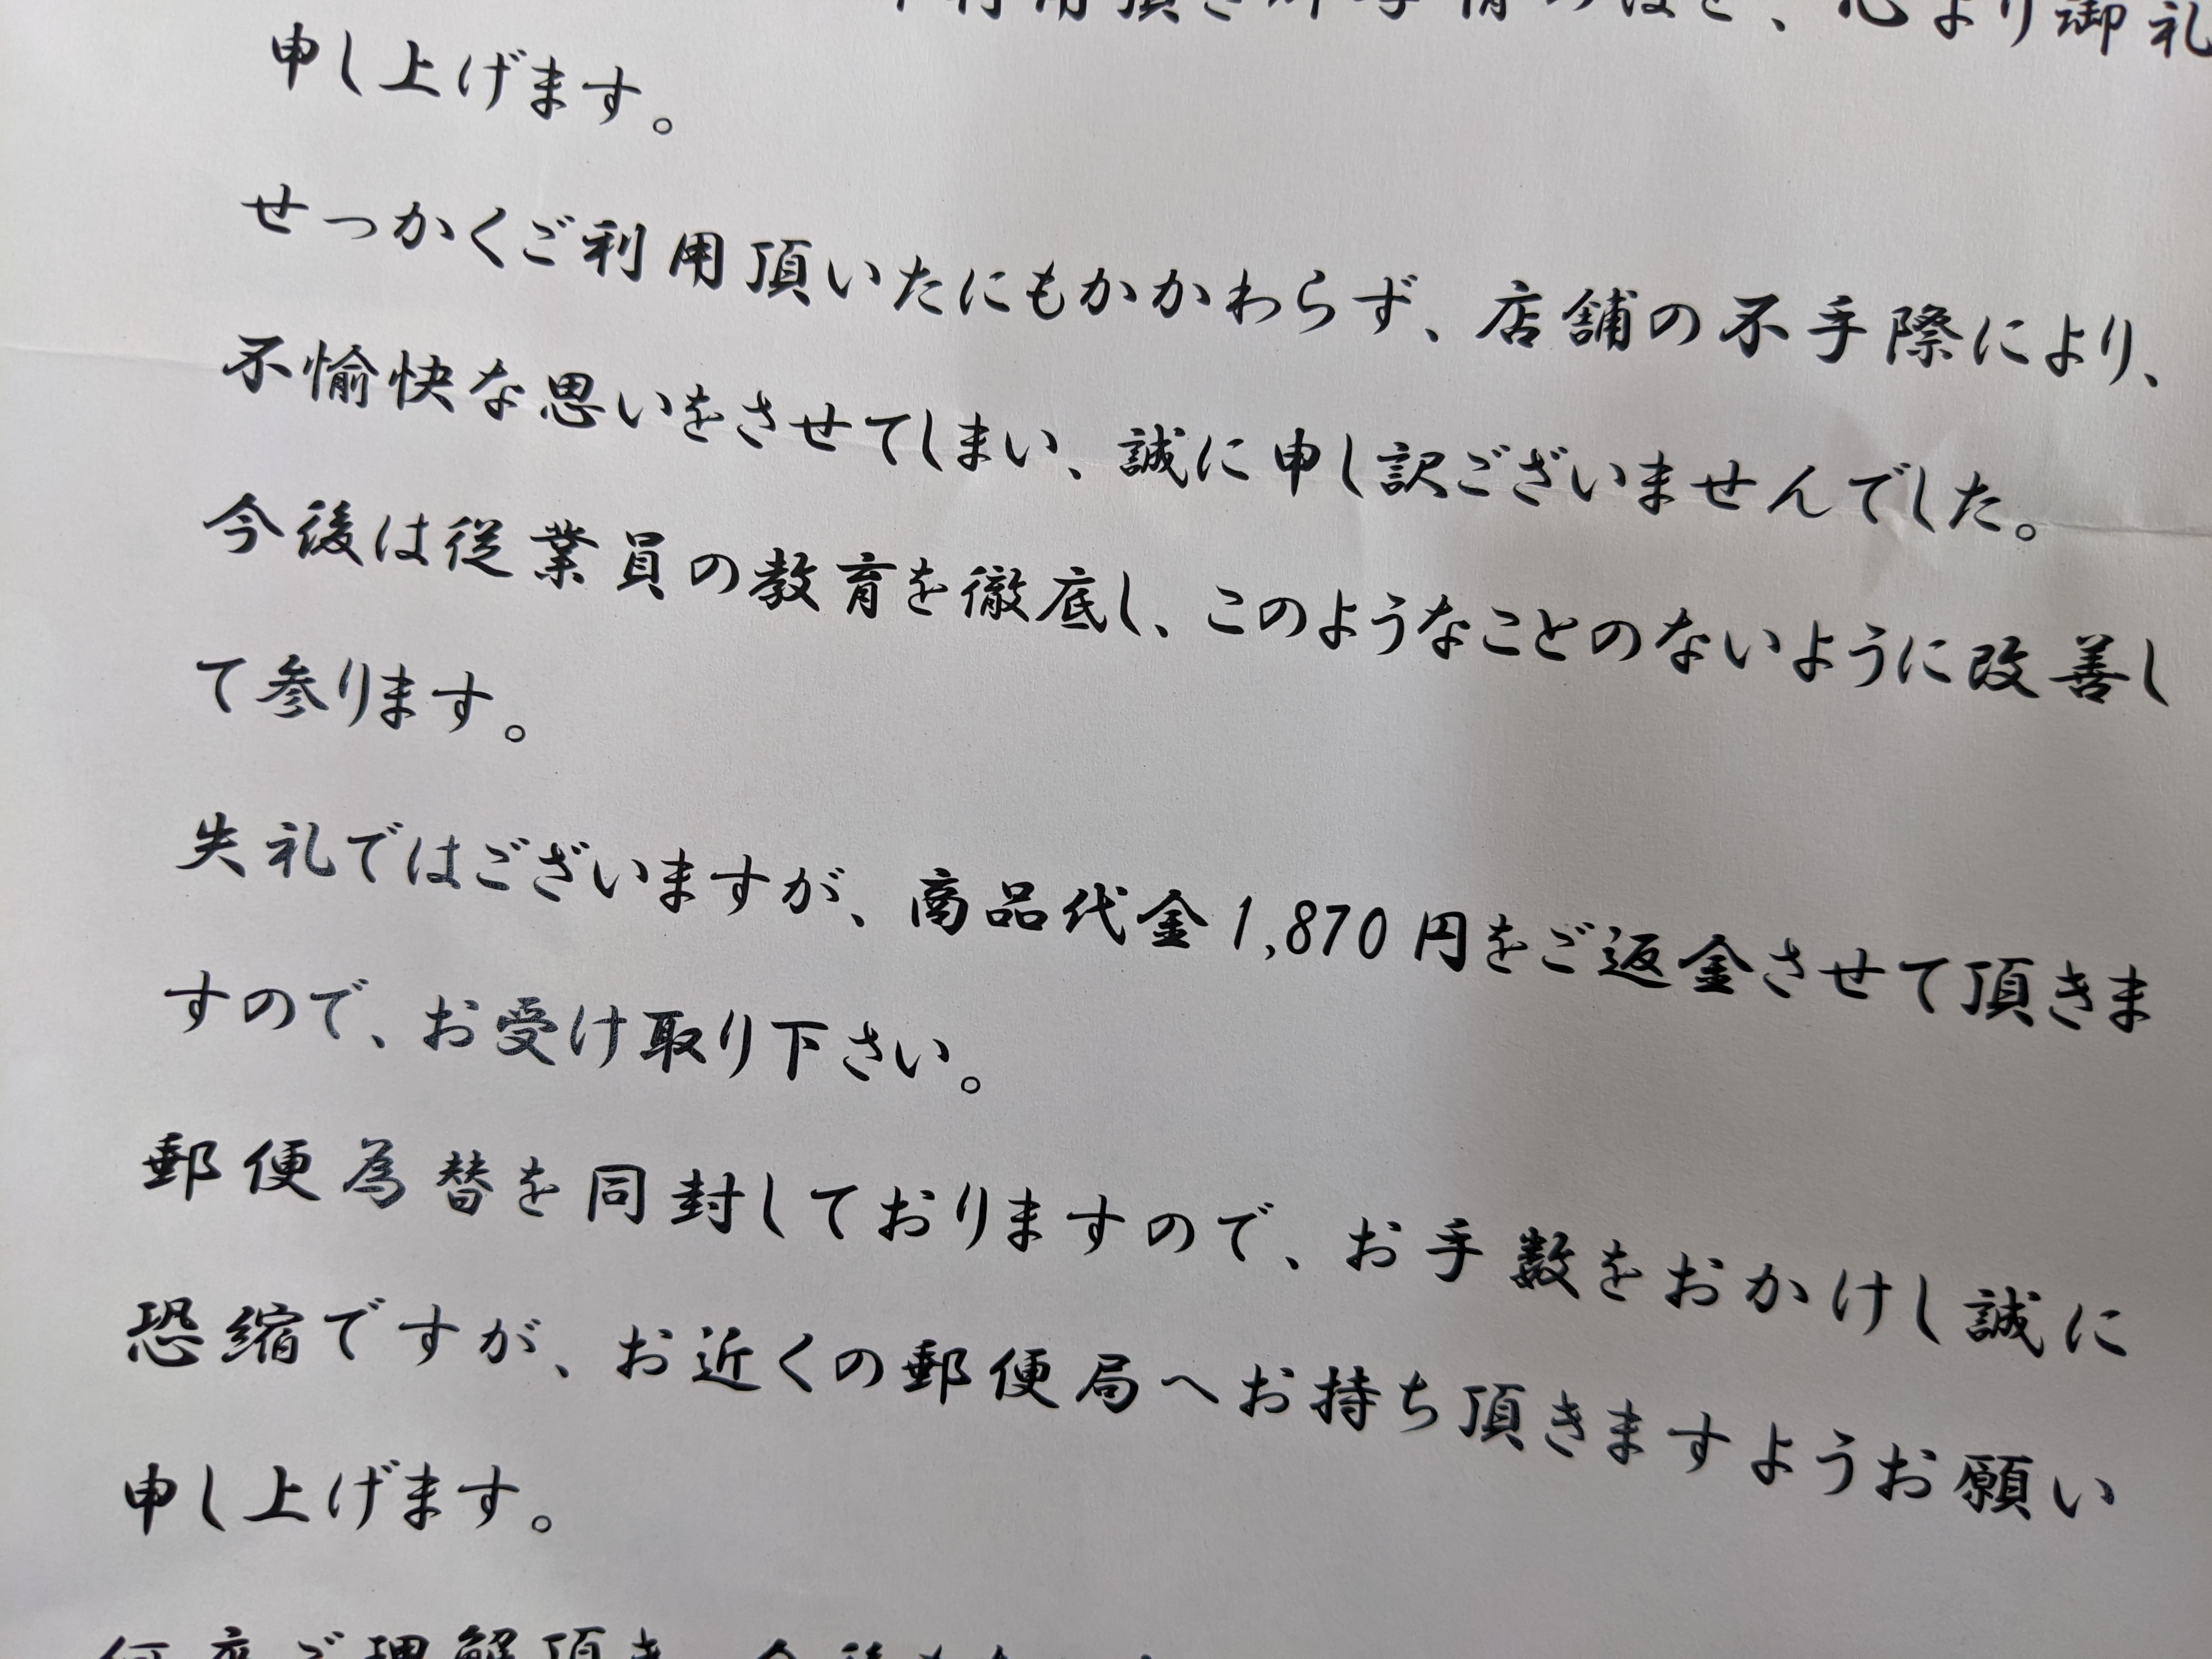 心より御礼
申し上げます。
せっかくご利用頂いたにもかかわらず、店舗の不手際により、
不愉快な思いをさせてしまい、誠に申し訳ございませんでした。
今後は従業員の教育を徹底し、このようなことのないように改善し
て参ります。
失礼ではございますが、商品代金1,870円をご返金させて頂きま
すので、お受け取り下さい。
郵便為替を同封しておりますので、お手数をおかけし誠に
恐縮ですが、お近くの郵便局へお持ち頂きますようお願い
申し上げます。
何卒ご理解頂き